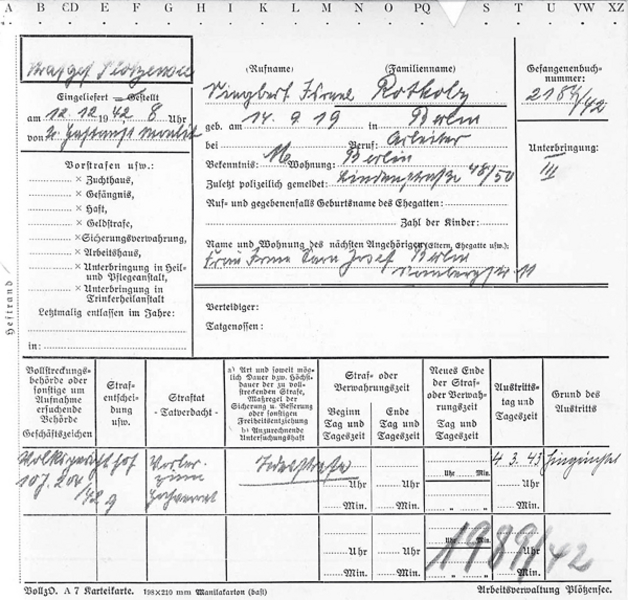 A B CD E F G H I K L M N O PQ R S T U VW XZ
Strafgef. Plötzensee
Eingeliefert – Gestellt
am 12.12 1942 8 Uhr
von
Vorstrafen usw.:
× Zuchthaus,
× Gefängnis,
× Haft,
× Geldstrafe,
× Sicherungsverwahrung,
× Arbeitshaus,
× Unterbringung in Heil- und Pflegeanstalt,
× Unterbringung in Trinkerheilanstalt
Letztmalig entlassen im Jahre:
in:
Heftrand
(Rufname) (Familienname)
Siegbert Israel Rotholz
geb. am 14. 9. 19 in Berlin
bei Beruf: Arbeiter
Bekenntnis: M Wohnung: Berlin
Zuletzt polizeilich gemeldet: Lindenstraße 48/50
Ruf- und gegebenenfalls Geburtsname des Ehegatten:
Zahl der Kinder:
Name und Wohnung des nächsten Angehörigen (Eltern, Ehegatte usw.):
Frau Josef Berlin
Verteidiger:
Tatgenossen:
Gefangenenbuch-
nummer:
/42
Unterbringung:
III
Vollstreckungs-
behörde oder
sonstige um
Aufnahme
ersuchende
Behörde
Geschäftszeichen
Straf-
entschei-
dung
usw.
Straftat
- Tatverdacht -
a) Art und soweit mög-
lich Dauer bzw. Höchst-
dauer der zu voll-
streckenden Strafe,
Maßregel der
Sicherung u. Besserung
oder sonstigen
Freiheitsentziehung
b) Anzurechnende
Untersuchungshaft
Straf- oder
Verwahrungszeit
Beginn
Tag und
Tageszeit
Ende
Tag und
Tageszeit
Neues Ende
der Straf-
oder Verwah-
rungszeit
Tag und
Tageszeit
Austritts-
tag und
Tageszeit
Grund des
Austritts
Volksgerichtshof
10 J. 204
/42 g
Vorber.
zum
Hochverrat
Todesstrafe
4.3.43 hingerichtet
Uhr Uhr Uhr Min. Uhr
Min. Min. " " Min.
Uhr Uhr Uhr Min. Uhr
Min. Min. " " Min.
1989/42
VollzO. A 7 Karteikarte. 198×210 mm Manilakarton (bast) Arbeitsverwaltung Plötzensee.